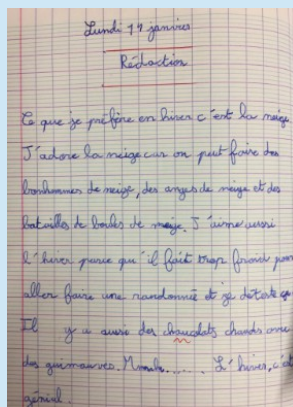 Lundi 17 janvier
Rédaction
Ce que je préfère en hiver c'est la neige.
J'adore la neige car on peut faire des
bonhommes de neige, des anges de neige et des
batailles de boules de neige. J'aime aussi
l'hiver parce qu'il fait trop froid pour
aller faire une randonnée et je déteste ça
Il y a aussi des chaucolats chauds avec
des guimauves. Mmmh....... L'hiver, c'est
génial.